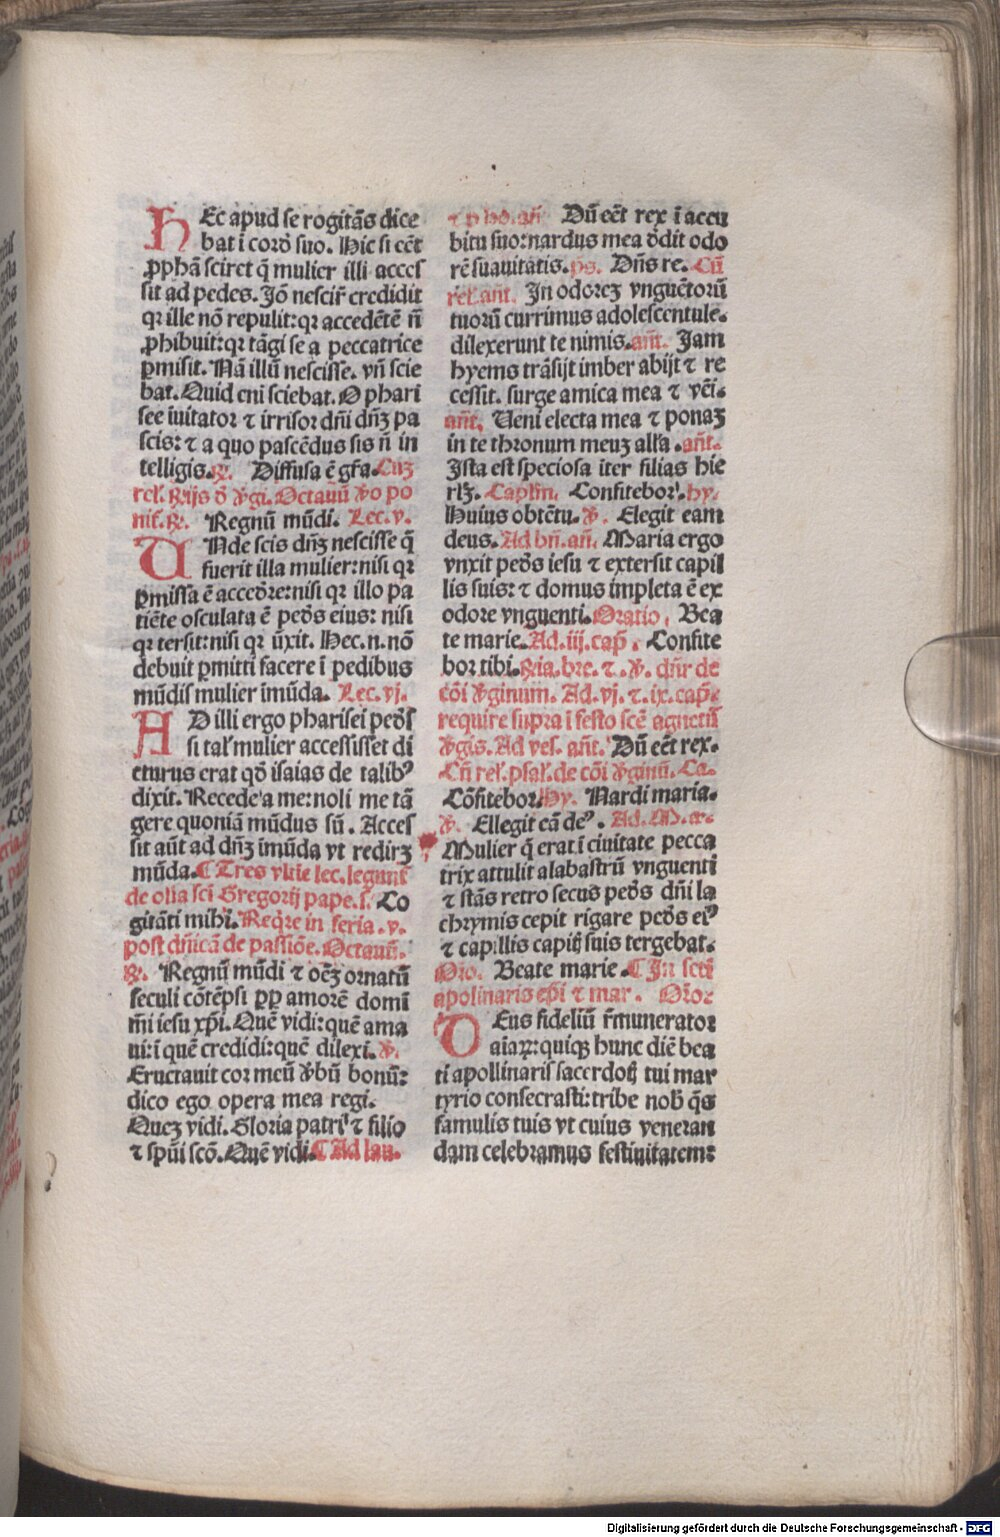 HEc apud se rogitãs dice
bat ĩ corð suo. Hic si eẽt
ꝓphã sciret q̃ mulier illi acces
sit ad pedes. Jõ nescir̃ credidit
qꝛ ille nõ repulit: qꝛ accedẽtẽ ñ
ꝓhibuit: qꝛ tãgi se a peccatrice
ꝑmisit. Nã illũ nescisse. vñ scie
bat. Quid eni sciebat. O phari
see iuitator ⁊ irrisor dñi dñꝫ pa
scis: ⁊ a quo pascẽdus sis ñ in
telligis. ℟. Diffusa ẽ gr̃a. Cuꝫ
rel̃. ℟ijs ð ꝟgi. Octauũ ꝟo po
nit̃. ℟. Regnũ mũdi. Lec. v.
UNde scis dñꝫ nescisse q̃
fuerit illa mulier: nisi qꝛ
ꝑmissa ẽ acceðre: nisi qꝛ illo pa
tiẽte osculata ẽ peðs eius: nisi
qꝛ tersit: nisi qꝛ ũxit. Hec. n. nõ
debuit ꝑmitti facere ĩ pedibus
mũdis mulier ĩmũda. Lec. vj.
AD illi ergo pharisei peðs
si tal̃ mulier accessisset di
cturus erat qð isaias de talibꝰ
dixit. Recede a me: noli me tã
gere quoniã mũdus sũ. Acces
sit aũt ad dñꝫ ĩmũda vt redirꝫ
mũda. ¶ Tres vltie lec. legunt̃
de olia sci Gregorij pape. s. Co
gitãti mihi. Reqͥre in feria. v.
post dñicã de passiõe. Octauũ.
℟. Regnũ mũdi ⁊ oẽꝫ ornatũ
seculi cõtẽpsi ꝓp̃ amorẽ domĩ
m̃i iesu xp̃i. Quẽ vidi: quẽ ama
ui: ĩ quẽ credidi: quẽ dilexi. ꝟ.
Eructauit cor meũ ꝟbũ bonũ:
dico ego opera mea regi.
Queꝫ vidi. Gloria patri ⁊ filio
⁊ spũi scõ. Quẽ vidi. ¶ Ad lau.
⁊ ꝑ ho. añ. Dũ eẽt rex ĩ accu
bitu suo: nardus mea ðdit odo
rẽ suauitatis. ps. Dñs re. Cũ
rel̃. añt. In odoreꝫ vnguẽtorũ
tuorũ currimus adolescentule.
dilexerunt te nimis. añt. Jam
hyems trãsijt imber abijt ⁊ re
cessit. surge amica mea ⁊ vẽi.
añt. Ueni electa mea ⁊ ponaꝫ
in te thronum meuꝫ all̃a. añt.
Ista est speciosa iter filias hie
rlꝫ. Caplm̃. Confitebor̃. hy.
Huius obtẽtu. ꝟ. Elegit eam
deus. Ad bñ. añ. Maria ergo
vnxit peðs iesu ⁊ extersit capil
lis suis: ⁊ domus impleta ẽ ex
odore vnguenti. Oratio. Bea
te marie. Ad. iij. cap̃. Confite
bor tibi. ℟ia. bre. ⁊. ꝟ. dñr de
cõi ꝟginum. Ad. vj. ⁊ ix. cap̃e
require supra ĩ festo scẽ agnetis
ꝟgis. Ad ves. añt. Dũ eẽt rex.
Cũ rel̃. psal̃. de cõi ꝟginũ. Ca.
Cõfitebor. Hy. Nardi maria.
ꝟ. Ellegit eã deꝰ. Ad. M. a.
Mulier q̃ erat ĩ ciuitate pecca
trix attulit alabastrũ vnguenti
⁊ stãs retro secus peðs dñi la
chrymis cepit rigare peðs eiꝰ
⁊ capillis capitꝭ suis tergebat.
Oro. Beate marie. ¶ In scti
apolinaris ep̃i ⁊ mar. Oro:
DEus fideliũ r̃munerator
aĩaꝝ: quiqꝫ hunc diẽ bea
ti apollinaris sacerdotꝭ tui mar
tyrio consecrasti: tribe nob̃ q̃s
famulis tuis vt cuius veneran
dam celebramus festiuitatem:
Digitalisierung gefördert durch die Deutsche Forschungsgemeinschaft - DFG